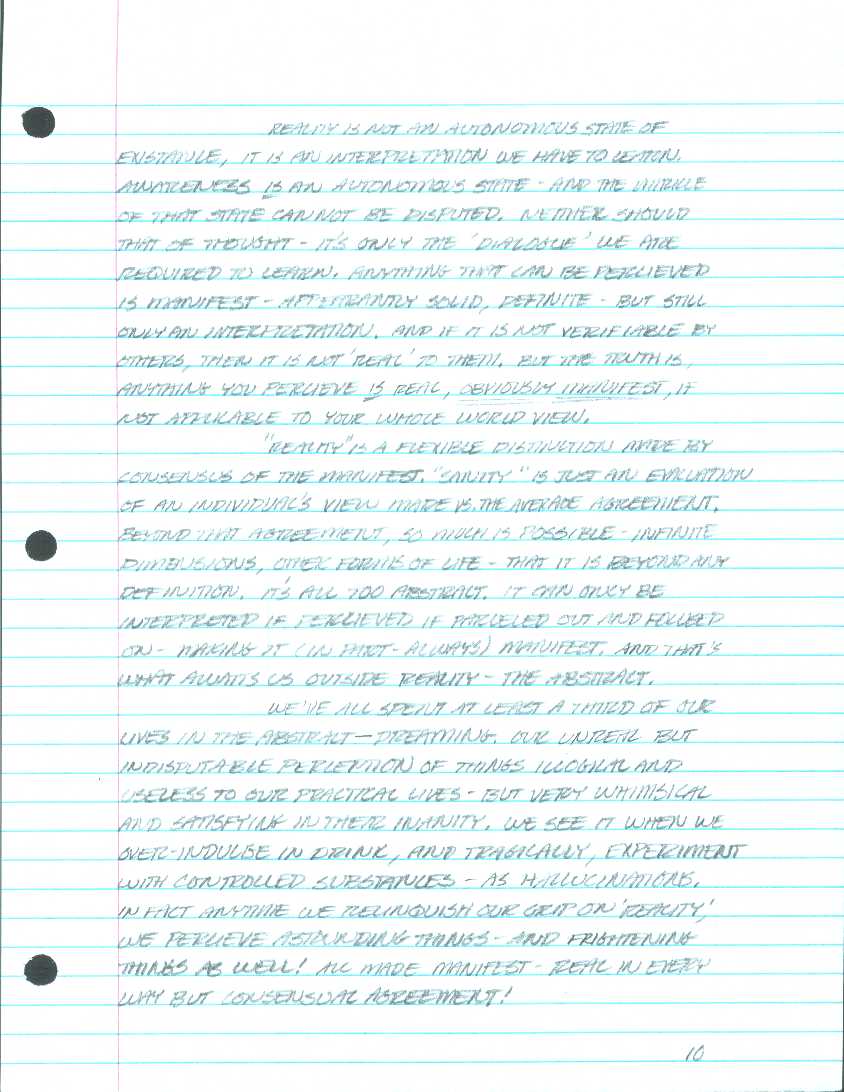 REALITY IS NOT AN AUTONOMOUS STATE OF
EXISTANCE, IT IS AN INTERPRETATION WE HAVE TO LEARN.
AWARENESS IS AN AUTONOMOUS STATE - AND THE MIRICLE
OF THAT STATE CAN NOT BE DISPUTED. NEITHER SHOULD
THAT OF THOUGHT - IT'S ONLY THE 'DIALOGUE' WE ARE
REQUIRED TO LEARN. ANYTHING THAT CAN BE PERCIEVED
IS MANIFEST - APPEARANTLY SOLID, DEFINITE - BUT STILL
ONLY AN INTERPRETATION. AND IF IT IS NOT VERIFIABLE BY
OTHERS, THEN IT IS NOT 'REAL' TO THEM. BUT THE TRUTH IS,
ANYTHING YOU PERCIEVE IS REAL, OBVIOUSLY MANIFEST, IF
NOT APPLICABLE TO YOUR WHOLE WORLD VIEW.
"REALITY" IS A FLEXIBLE DISTINCTION MADE BY
CONSENSUS OF THE MANIFEST. "SANITY" IS JUST AN EVALUATION
OF AN INDIVIDUAL'S VIEW MADE VS. THE AVERAGE AGREEMENT.
BEYOND THAT AGREEMENT, SO MUCH IS POSSIBLE - INFINITE
DIMENSIONS, OTHER FORMS OF LIFE - THAT IT IS BEYOND ANY
DEFINITION. IT'S ALL TOO ABSTRACT. IT CAN ONLY BE
INTERPRETED IF PERCIEVED IF PARCELED OUT AND FOCUSED
ON - MAKING IT (IN PART - ALWAYS) MANIFEST. AND THAT'S
WHAT AWAITS US OUTSIDE REALITY - THE ABSTRACT.
WE'VE ALL SPENT AT LEAST A THIRD OF OUR
LIVES IN THE ABSTRACT - DREAMING. OUR UNREAL BUT
INDISPUTABLE PERCEPTION OF THINGS ILLOGICAL AND
USELESS TO OUR PRACTICAL LIVES - BUT VERY WHIMSICAL
AND SATISFYING IN THEIR INSANITY. WE SEE IT WHEN WE
OVER-INDULGE IN DRINK, AND TRAGICALLY, EXPERIMENT
WITH CONTROLLED SUBSTANCES - AS HALLUCINATIONS.
IN FACT ANYTIME WE RELINQUISH OUR GRIP ON 'REALITY,'
WE PERCIEVE ASTOUNDING THINGS - AND FRIGHTENING
THINGS AS WELL! ALL MADE MANIFEST - REAL IN EVERY
WAY BUT CONSENSUAL AGREEMENT!
10